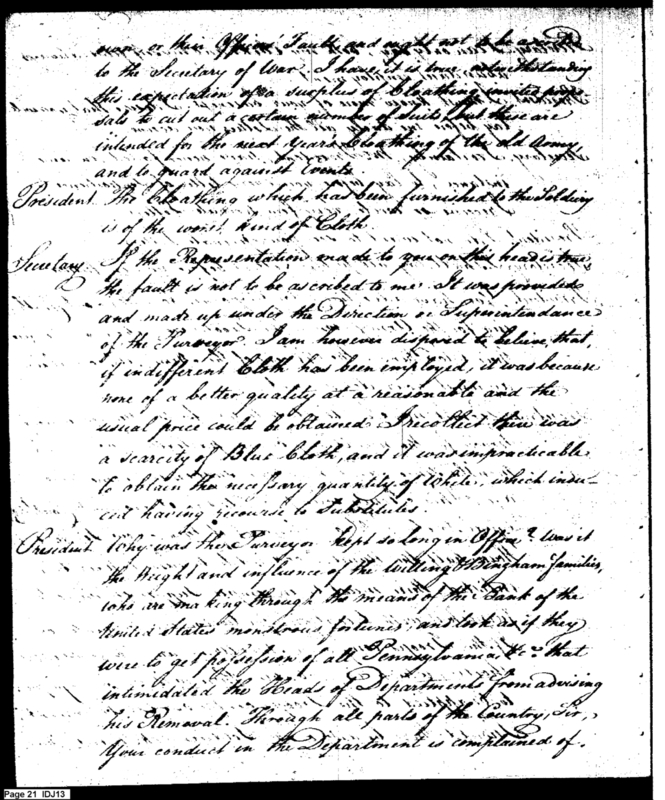 own, or their Officers' Faults and ought not to be
to the Secretary of War. I have, it is true, notwithstanding
this expectation of a surplus of Cloathing invited propo-
sals to cut out a certain number of suits, but these are
intended for the next years Cloathing of the old Army,
and to guard against Events.
President. The Cloathing which has been furnished to the Soldiery
is of the worst kind of Cloth.
Secretary If the Representation made to you on this head is true,
the fault is not to be ascribed to me. It was provided
and made up under the Direction or Superintendance
of the Purveyor. I am however disposed to believe, that,
if indifferent Cloth has been employed, it was because
none of a better quality at a reasonable and the
usual price could be obtained. I recollect there was
a scarcity of Blue Cloth, and it was impracticable
to obtain the necessary quantity of White, which indu-
ced having recourse to substitutes.
President. Why was the Purveyor kept so long in Office? Was it
the Weight and influence of the Willing & Bingham families,
who are making through the means of the Bank of the
United States monstrous fortunes, and look as if they
were to get possession of all Pennsylvania &c. that
intimidated the Heads of Departments from advising
his Removal. Through all parts of the Country, Sir,
Your conduct in the Department is complained of.
Page 21 IDJ13